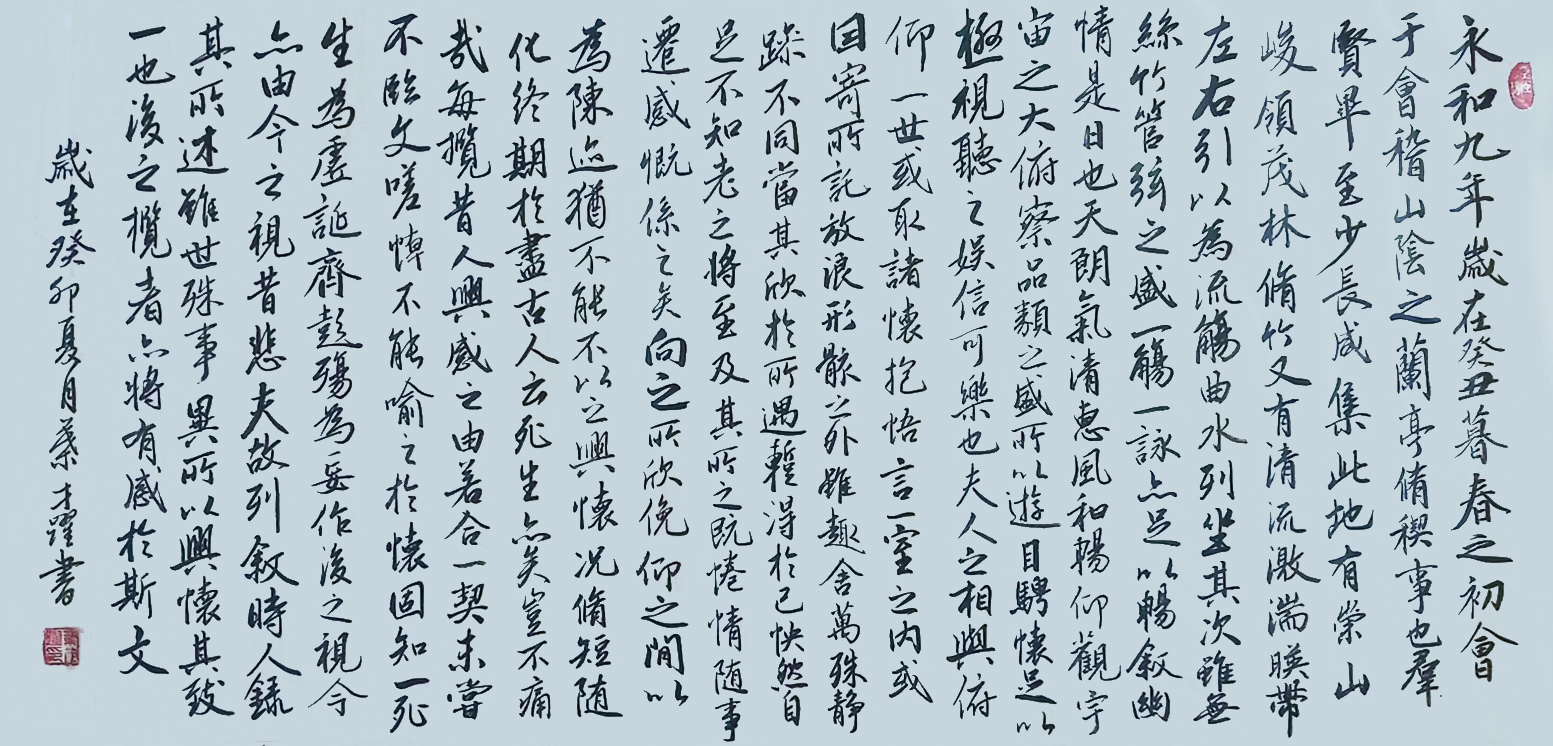 永和九年歲在癸丑暮春之初會
于會稽山陰之蘭亭脩稧事也羣
賢畢至少長咸集此地有崇山
峻領茂林脩竹又有清流激湍暎帶
左右引以為流觴曲水列坐其次雖無
絲竹管弦之盛一觴一詠亦足以暢敘幽
情是日也天朗氣清惠風和暢仰觀宇
宙之大俯察品類之盛所以遊目騁懷足以
極視聽之娛信可樂也夫人之相與俯
仰一世或取諸懷抱悟言一室之内或
因寄所託放浪形骸之外雖趣舍萬殊靜
躁不同當其欣於所遇蹔得於己怏然自
足不知老之將至及其所之既惓情随事
遷感慨係之矣向之所欣俛仰之間以
為陳迹猶不能不以之興懷況脩短随
化終期於盡古人云死生亦矣豈不痛
哉每攬昔人興感之由若合一契未嘗
不臨文嗟悼不能喻之於懷固知一死
生為虛誕齊彭殤為妄作後之視今
亦由今之視昔悲夫故列敘時人錄
其所述雖世殊事異所以興懷其致
一也後之攬者亦將有感於斯文
歲在癸卯夏月葉才躍書